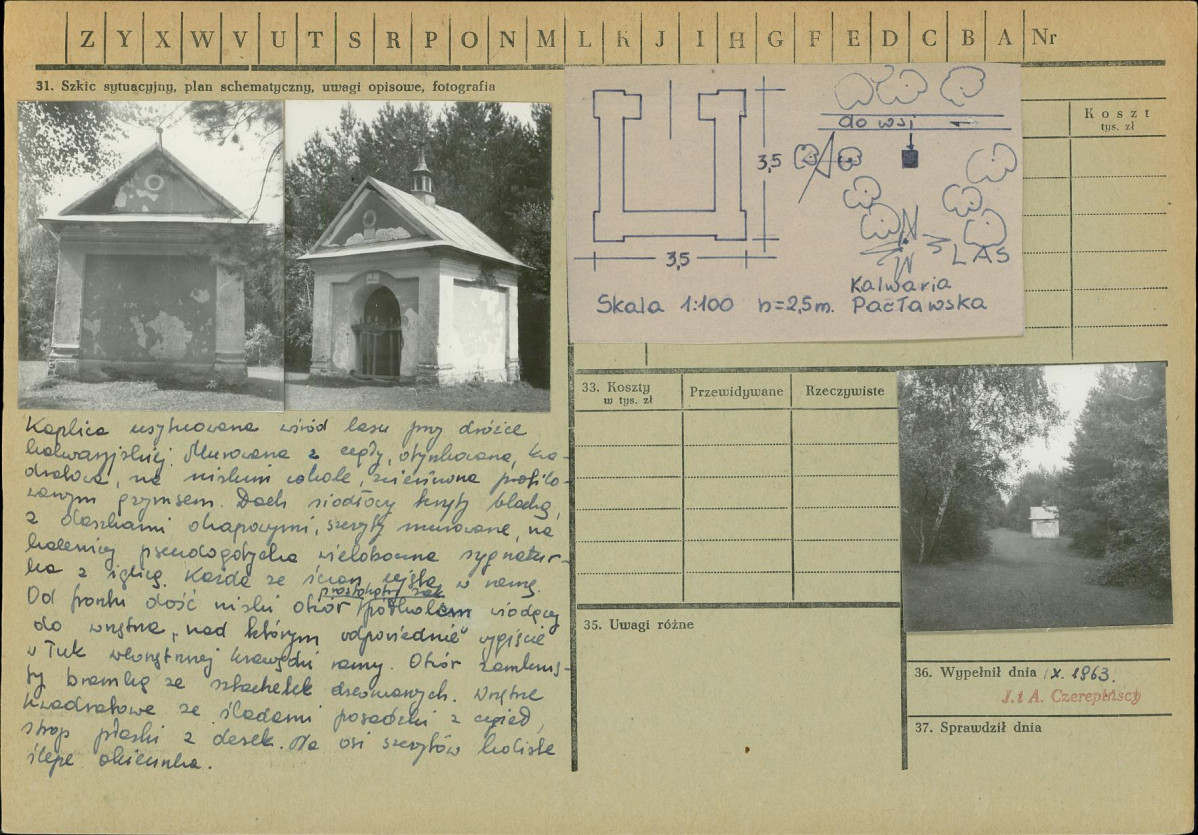 Z Y X W V U T S R P O N M L K J I H G F E D C B A Nr
31. Szkic sytuacyjny, plan schematyczny, uwagi opisowe, fotografia
Koszt
tys. zł
do wsi
3,5
3,5
LAS
Kalwaria
Skala 1:100 h=2,5m. Pacławska
Kaplica usytuowana wśród lasu przy dróżce
kalwaryjskiej. Murowana z cegły, otynkowana, kwa-
dratowa, na niskim cokole, zwieńczona profilo-
wanym gzymsem. Dach siodłowy kryty blachą,
z daszkami okapowymi, szczyty murowane, na
kalenicy pseudogotycka wieloboczna sygnatur-
ka z iglicą. Każda ze ścian ujęta w ramę.
prostokątny zak
Od frontu dość niski otwór półkolem wiodący
do wnętrza, nad którym odpowiednie wygięcie
w łuk wewnętrznej krawędzi ramy. Otwór zamknię-
ty bramką ze sztachetek drewnianych. Wnętrze
kwadratowe ze śladami posadzki z cegieł,
strop płaski z desek. Na osi szczytów koliste
ślepe okienka.
33. Koszty
w tys. zł
Przewidywane
Rzeczywiste
35. Uwagi różne
36. Wypełnił dnia IX. 1963.
J. i A. Czerepińscy
37. Sprawdził dnia